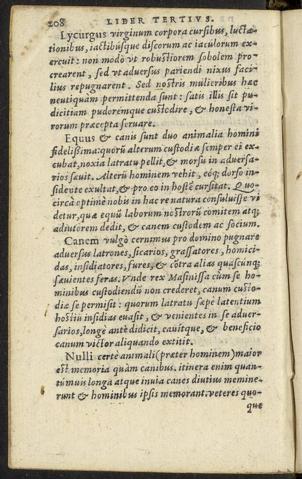 208 LIBER TERTIVS.
Lycurgus virginum corpora cursibus, luctæ-
tionibus, iactibúsque discorum ac iaculorum ex-
ercuit: non modò vt robustiorem sobolem pro-
crearent, sed vt aduersus pariendi nixus faci-
lius repugnarent. Sed nostris mulieribus hæc
neutiquàm permittenda sunt: satis illis sit pu-
dicitiam pudorémque custodire, & honesta vi-
rorum præcepta seruare.
Equus & canis sunt duo animalia homini
fidelissima: quorũ alterum custodiæ semper ei ex-
cubat, noxia latratu pellit, & morsu in aduersa-
rios sæuit. Alterũ hominem vehit, eóq; dorso in-
sidente exultat, & pro eo in hostẽ cursitat. Quo-
circà optimè nobis in hac re natura consuluisse vi
detur, quæ equũ laborum nostrorũ comitem atq;
adiutorem dedit, & canem custodem ac socium.
Canem vulgò cernimus pro domino pugnare
aduersus latrones, sicarios, grassatores, homici-
das, insidiatores, fures, & cõtra alias quascũnq;
sæuientes feras. Vnde rex Masinissa cùm se ho-
minibus custodiendũ non crederet, canum custo-
diæ se permisit: quorum latratu sæpè latentium
hostiũ insidias euasit, & venientes in se aduer-
sarios, longè antè didicit, cauítque, & beneficio
canum victor aliquando extitit.
Nulli certè animali (præter hominem) maior
est memoria quàm canibus. itinera enim quan-
tùmuis longa atque inuia canes diutius memine-
runt & hominibus ipsis memorant: veteres quo-
que